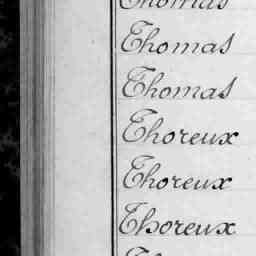 Thomas
Thomas
Thomas
Thoreux
Thoreux
Thoreux